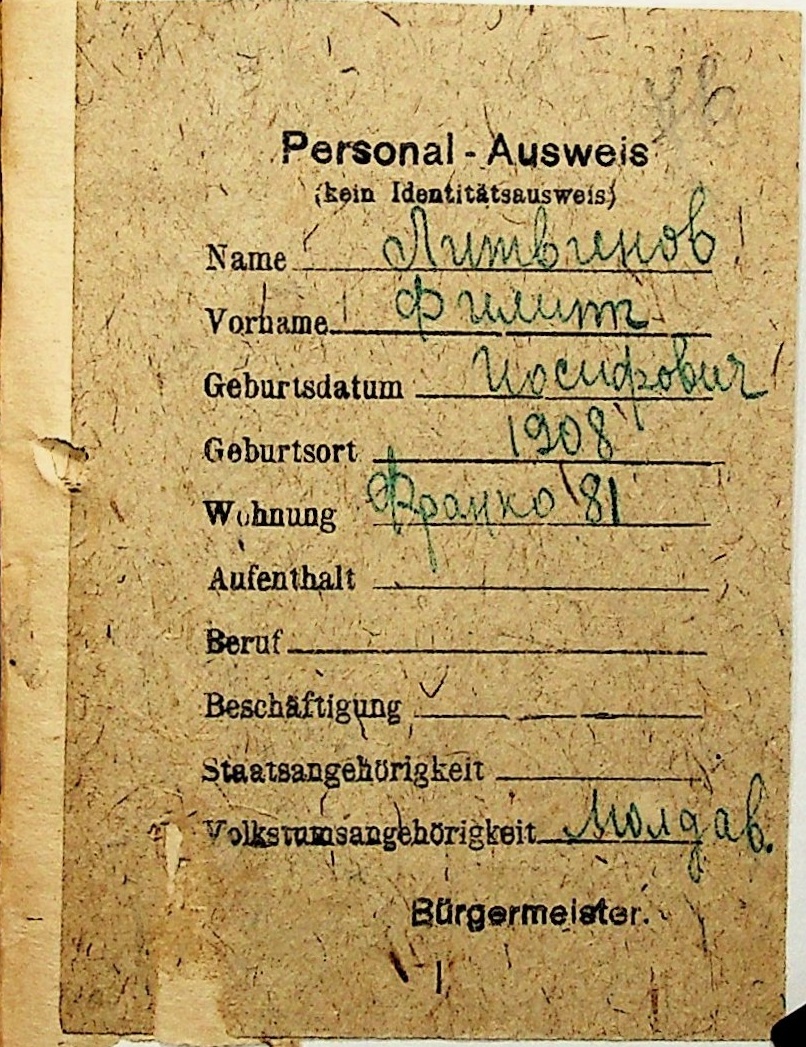 Personal - Ausweis
(kein Identitätsausweis)
Name Литвинов
Vorname Филипп
Geburtsdatum Иосифович
Geburtsort 1908
Wohnung Франко 81
Aufenthalt
Beruf
Beschäftigung
Staatsangehörigkeit
Volkstumsangehörigkeit Молдав.
Bürgermeister.